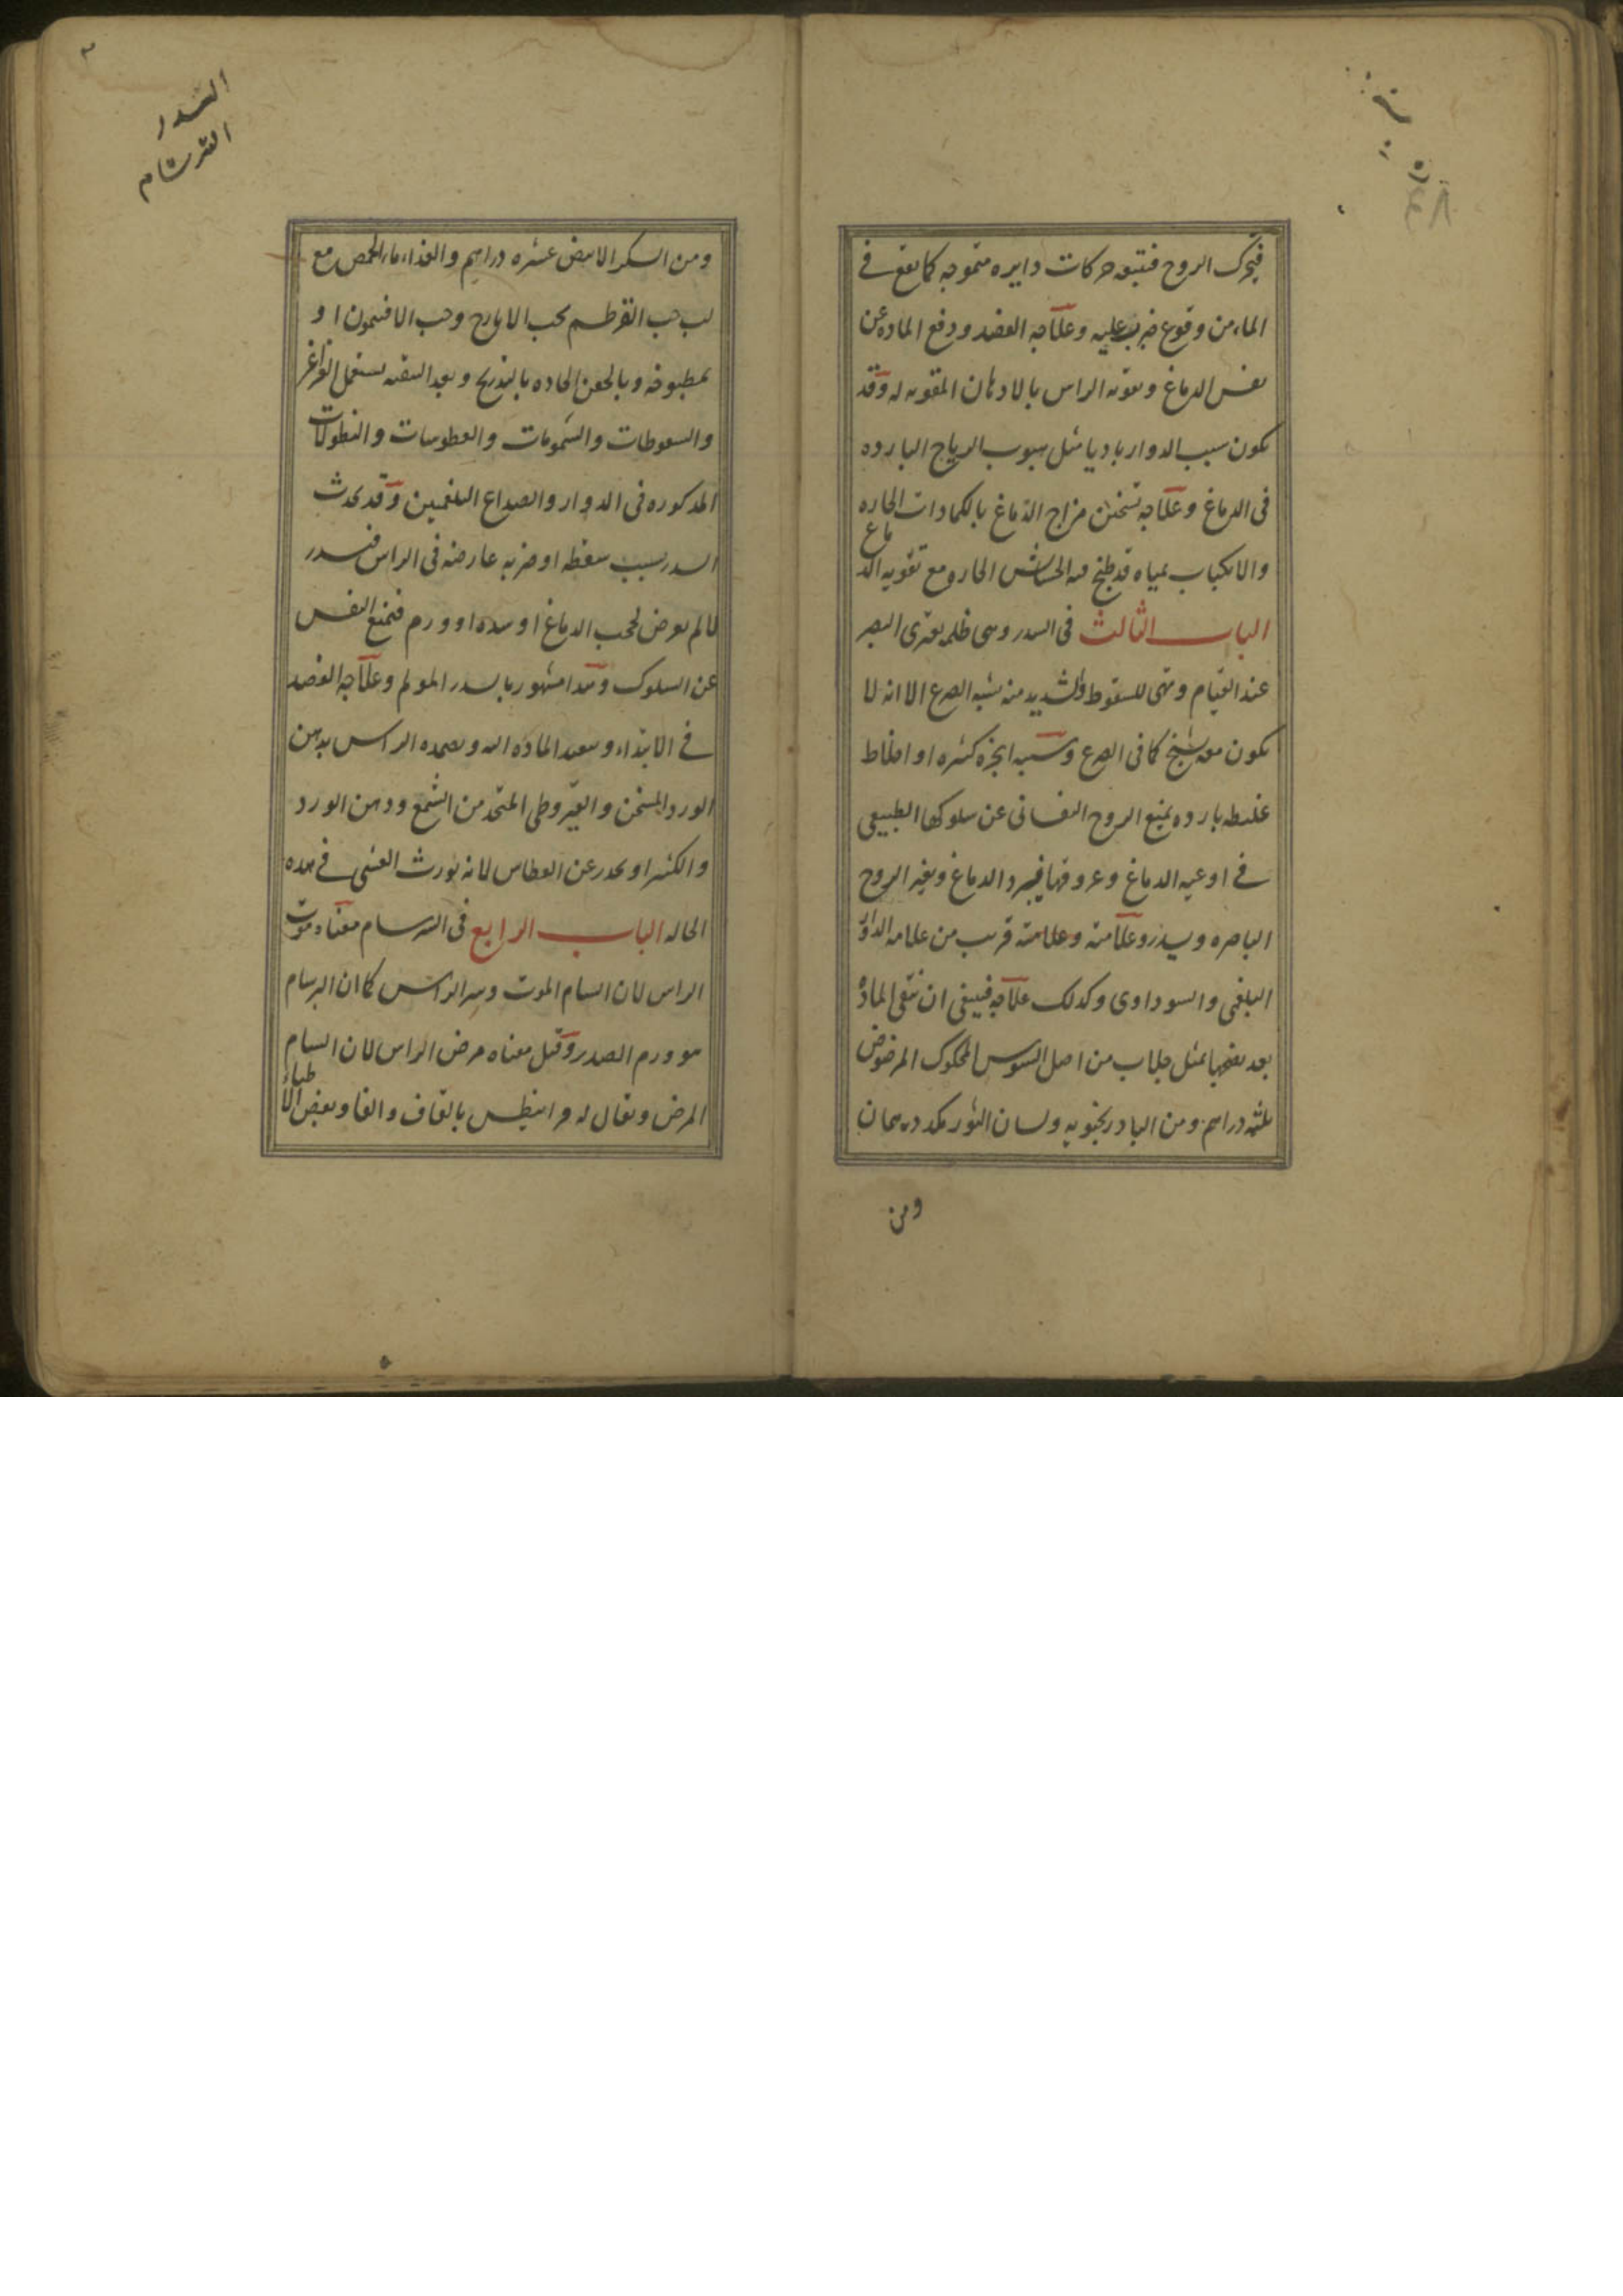 فيتحرك الروح فتتبعه حركات دايره متموجه كما يقع فى
الماء من وقوع ضربة عليه وعلاجه الفصد ودفع الماده عن
نفس الدماغ وتقويه الراس بالادهان المقويه له وقد
يكون سبب الدوار باديا مثل هبوب الرياح البارده
فى الدماغ وعلاجه تسخين مزاج الدماغ بالكمادات الحاره
والانكباب بمياه قد طبخ فيه الحشائش الحاره مع تقويه الدماغ
الباب الثالث فى السدر وهى ظلمه تعترى البصر
عند القيام وتهئ للسقوط والشديد منه يشبه الصرع الا انه لا
يكون معه تشنج كما فى الصرع وسببه ابخره كثيره او اخلاط
غليظه بارده يمنع الروح النفسانى عن سلوكها الطبيعى
فى اوعيه الدماغ وعروقها فيبرد الدماغ ويغير الروح
الباصره ويسدر وعلامته وعلامته قريب من علامه الدوار
البلغمى والسوداوى وكذلك علاجه فينبغى ان تنقى الماده
بعد نضجها بمثل جلاب من اصل السوس المحكوك المرضوض
ثلثه دراهم ومن البادرنجبويه ولسان الثور مكد درهمان
ومن
السدر
السرسام
ومن السكر الابيض عشره دراهم والغذاء ماء الحمص مع
لب حب القرطم بحب الايارج وحب الافتيمون او
بمطبوخه وبالحقن الحاده بالتدريج وبعد التنقيه يستعمل الغراغر
والسعوطات والشمومات والعطوسات والنطولات
المذكوره فى الدوار والصداع البلغمين وقد يحدث
السدر بسبب سقطه او ضربه عارضه فى الراس فيسدر
لالم يعرض لحجب الدماغ او سده او ورم فتمنع النفس
عن السلوك وهذا مشهور بالسدر المولم وعلاجه الفصد
فى الابتداء وتبعيد الماده الى وتضميده الراس بدهن
الورد المسخن والقيروطى المتخذ من الشمع ودهن الورد
والكثيرا ويحذر عن العطاس لانه يورث الغشى فى هذه
الحاله الباب الرابع فى السرسام معناه موت
الراس لان السام الموت وسر الراس كما ان البرسام
هو ورم الصدر وقيل معناه مرض الراس لان السام
المرض ويقال له قرانيطس بالقاف والفا وبعض الاطباء